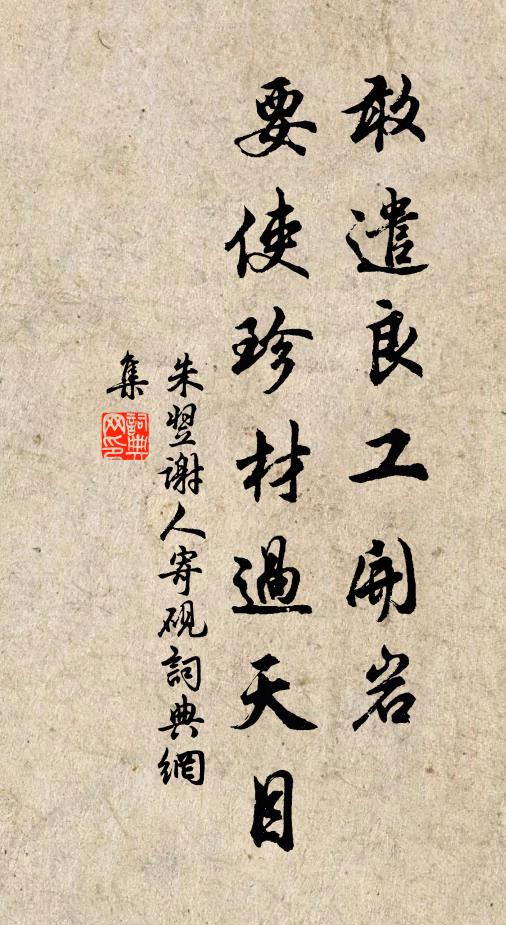 敢遣良工開岩
要使珍材過天目
朱翌谢人寄砚詞典網
集
詞典
网印